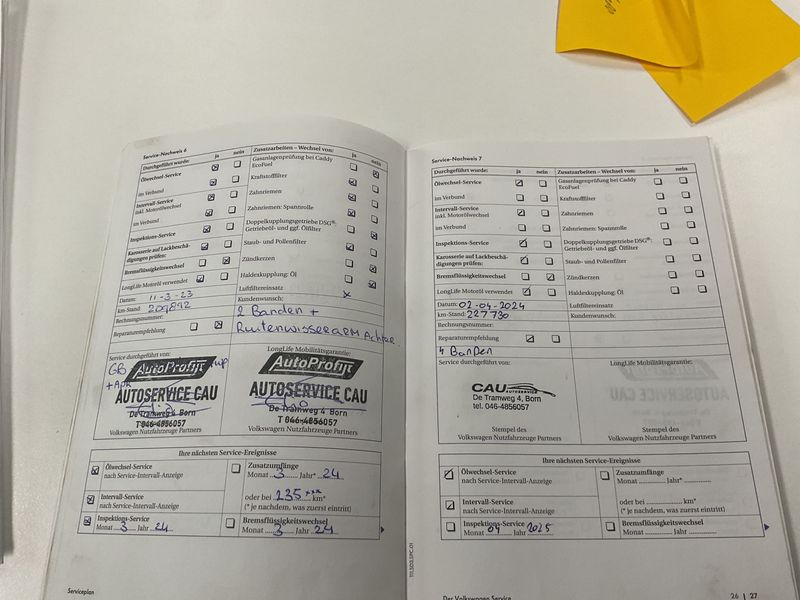 Service-Nachweis 6
Durchgeführt wurde: ja nein
Zusatzarbeiten – Wechsel von: ja nein
Ölwechsel-Service
Gasanlagenprüfung bei Caddy
EcoFuel
im Verbund
Kraftstofffilter
Intervall-Service
inkl. Motorölwechsel
Zahnriemen
im Verbund
Zahnriemen: Spannrolle
Inspektions-Service
Doppelkupplungsgetriebe DSG®:
Getriebeöl- und ggf. Ölfilter
Karosserie auf Lackbeschä-
digungen prüfen:
Staub- und Pollenfilter
Bremsflüssigkeitswechsel
Zündkerzen
LongLife Motoröl verwendet
Haldexkupplung: Öl
Datum: 11-3-23
Luftfiltereinsatz
km-Stand: 209892
Kundenwunsch:
Rechnungsnummer:
2 Banden +
Reparaturempfehlung
Ruitenwisserarm Achter
Service durchgeführt von:
LongLife Mobilitätsgarantie:
GB
+ APK
AutoProfijt
AUTOSERVICE CAU
De Tramweg 4 Born
T 046-4856057
Volkswagen Nutzfahrzeuge Partners
AutoProfijt
AUTOSERVICE CAU
De Tramweg 4, Born
T 046-4856057
Volkswagen Nutzfahrzeuge Partners
Ihre nächsten Service-Ereignisse
Ölwechsel-Service
nach Service-Intervall-Anzeige
Zusatzumfänge
Monat 3 Jahr* 24
Intervall-Service
nach Service-Intervall-Anzeige
oder bei 235*** km*
(* je nachdem, was zuerst eintritt)
Inspektions-Service
Monat 3 Jahr 24
Bremsflüssigkeitswechsel
Monat 3 Jahr 24
Serviceplan
Service-Nachweis 7
Durchgeführt wurde: ja nein
Zusatzarbeiten – Wechsel von: ja nein
Ölwechsel-Service
Gasanlagenprüfung bei Caddy
EcoFuel
im Verbund
Kraftstofffilter
Intervall-Service
inkl. Motorölwechsel
Zahnriemen
im Verbund
Zahnriemen: Spannrolle
Inspektions-Service
Doppelkupplungsgetriebe DSG®:
Getriebeöl- und ggf. Ölfilter
Karosserie auf Lackbeschä-
digungen prüfen:
Staub- und Pollenfilter
Bremsflüssigkeitswechsel
Zündkerzen
LongLife Motoröl verwendet
Haldexkupplung: Öl
Datum: 02-04-2024
Luftfiltereinsatz
km-Stand: 227730
Kundenwunsch:
Rechnungsnummer:
Reparaturempfehlung
4 Banden
Service durchgeführt von:
LongLife Mobilitätsgarantie:
CAU
De Tramweg 4, Born
tel. 046-4856057
Stempel des
Volkswagen Nutzfahrzeuge Partners
Stempel des
Volkswagen Nutzfahrzeuge Partners
Ihre nächsten Service-Ereignisse
Ölwechsel-Service
nach Service-Intervall-Anzeige
Zusatzumfänge
Monat Jahr*
Intervall-Service
nach Service-Intervall-Anzeige
oder bei km*
(* je nachdem, was zuerst eintritt)
Inspektions-Service
Monat 04 Jahr 2025
Bremsflüssigkeitswechsel
Monat Jahr
Der Volkswagen Service
26 | 27